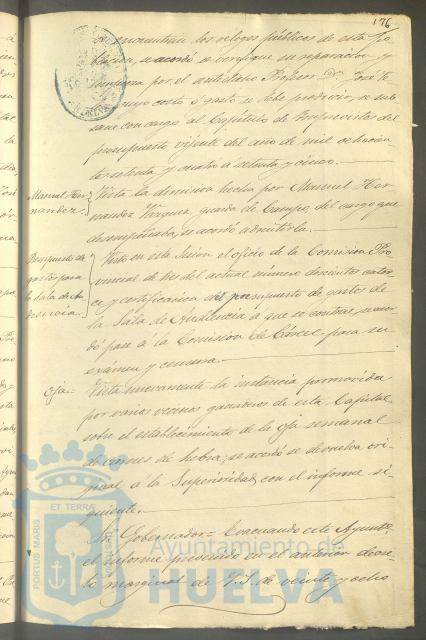 176
se encuentran los relojes públicos de esta Po
blacion, se acordó se verifique su reparacion y
limpieza por el antedicho Profesor D. José
cuyo costo ó gasto
con cargo al Capítulo de Imprevistos del
presupuesto vijente del año de mil ochocien
tos setenta y cuatro á setenta y cinco.
Manuel Her
nandez.
Vista la dimision hecha por Manuel Her
nandez Vazquez, guarda de Campo, del cargo que
desempeñaba, se acordó admitirla.
Presupuesto de
gastos para
la Sala de Au
diencia.
Visto en esta Sesion el oficio de la Comision Pro
vincial de tres del actual número doscientos cator
ce y certificacion del presupuesto de gastos de
la Sala de Audiencia á que se contrae, acor
dó pase á la Comision de Cárcel para su
exámen y censura.
Oja
Vista nuevamente la instancia promovida
por varios vecinos ganaderos de esta Capital
sobre el establecimiento de la oja semanal
de carnes de hebra, se acordó se devuelva ori
ginal á la Superioridad, con el informe si
guiente.
Sr. Gobernador = Evacuando este Ayunto.
el informe prevenido en el anterior decre
to marginal de V.S. de veinte y ocho
PORTUS MARIS ET TERRAE
Ayuntamiento de
HUELVA